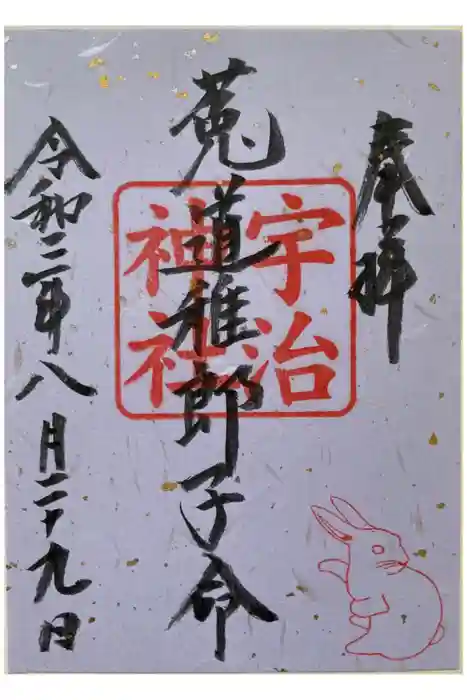 奉拝
菟道稚郎子命
宇治
神社
令和二年八月二十九日